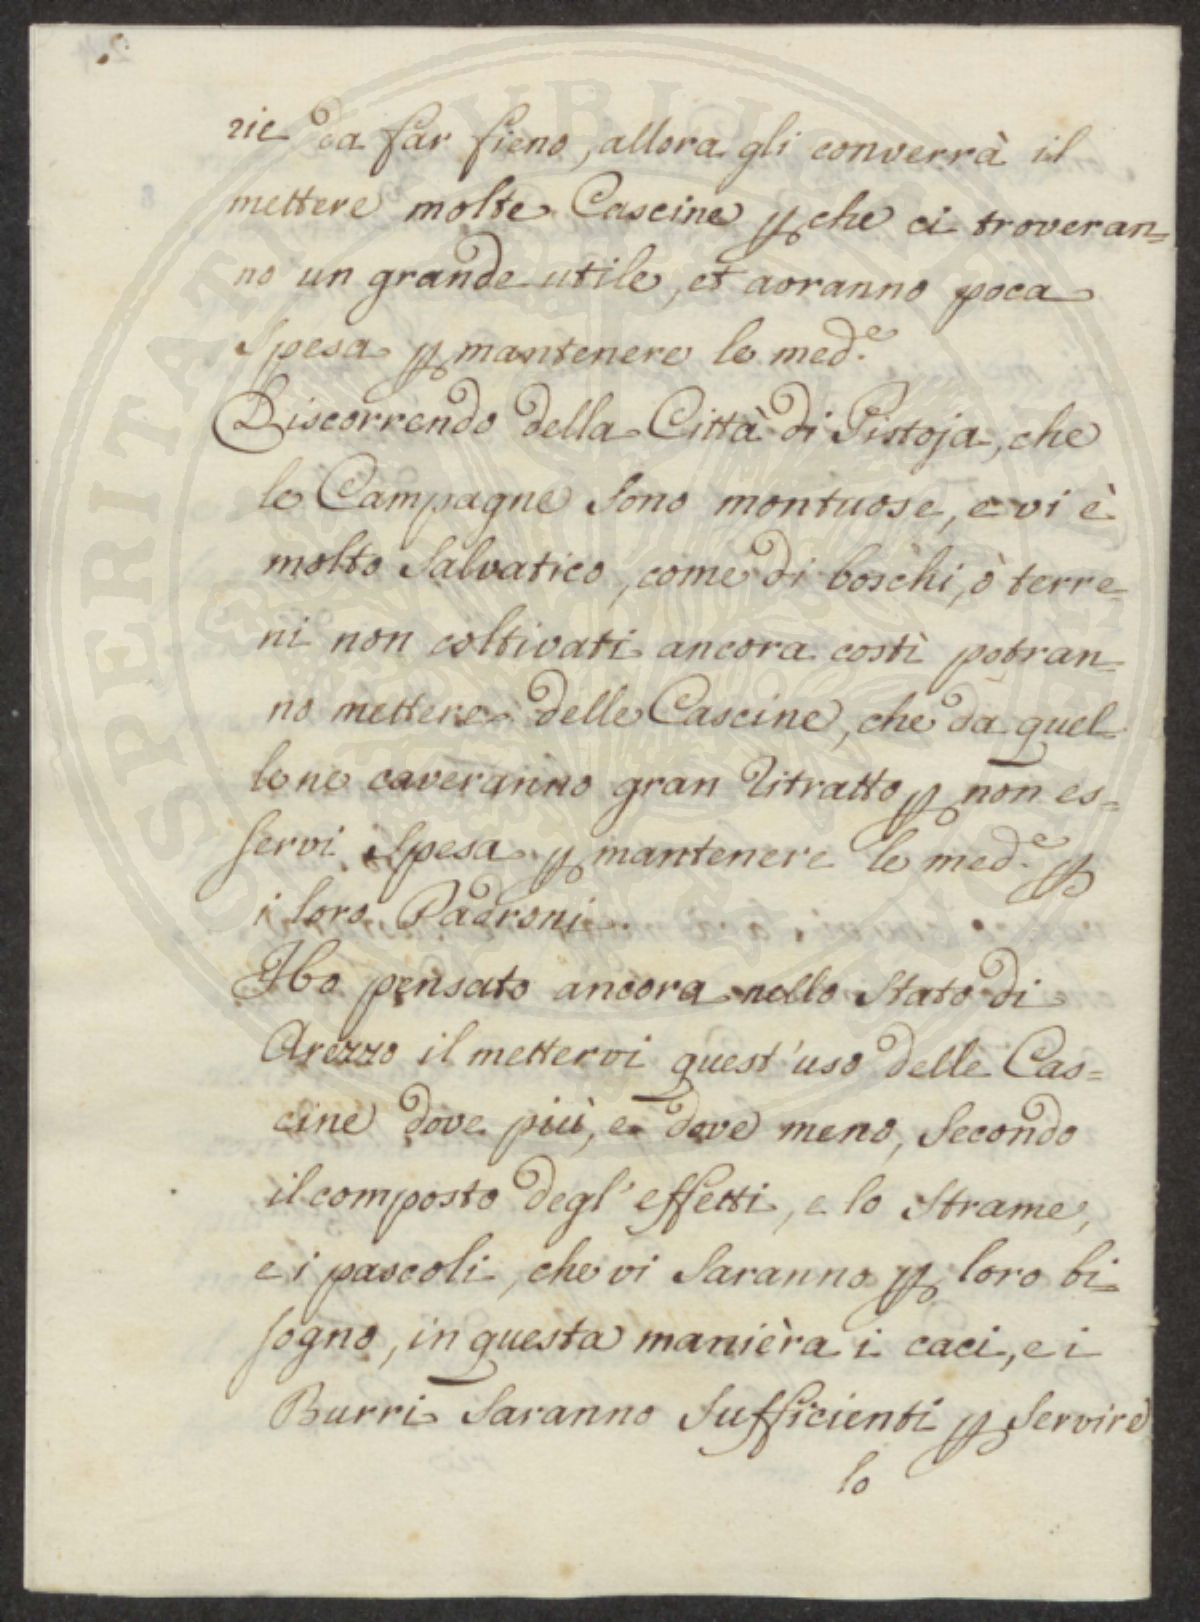 rie da far fieno, allora gli converrà il
mettere molte Cascine ꝑ che ci troveran=
no un grande utile, et avranno poca
Spesa ꝑ mantenere le med.e
Discorrendo della Città di Pistoja, che
le Campagne sono montuose, e vi è
molto Salvatico, come di boschi, ò terre=
ni non coltivati ancora costì potran=
no mettere delle Cascine, che da quel=
le ne caveranno gran ritratto ꝑ non es=
servi Spesa ꝑ mantenere le med.e ꝑ
i loro Padroni.
Ho pensato ancora nello Stato di
Arezzo il mettervi quest'uso delle Cas=
cine dove più, e dove meno, Secondo
il composto degl'effetti, e lo Strame,
e i pascoli, che vi Saranno ꝑ loro bi=
sogno, in questa manièra i caci, e i
Burri Saranno Sufficienti ꝑ Servire
lo